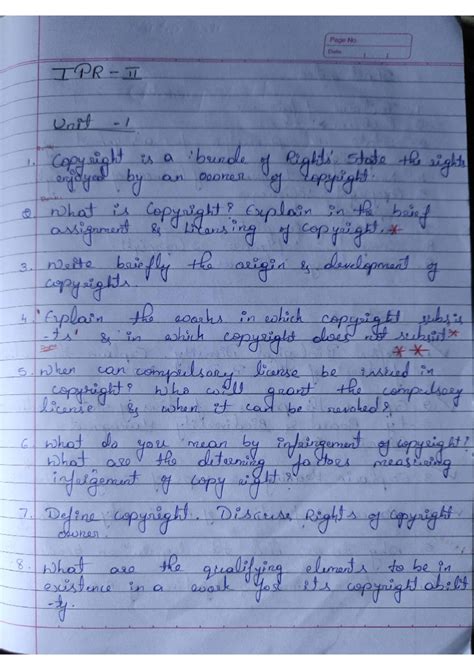 Page No.
Date
IPR - II
Unit - 1
1. Copyright is a 'bundle of Rights'. State the rights
enjoyed by an owner of copyright.
2. What is Copyright? Explain in the brief
assignment & licensing of copyright. *
3. Write briefly the origin & development of
copyrights.
4. 'Explain the works in which copyright subsis
-ts' & in which copyright does not subsist *
* *
5. When can compulsory license be issued in
copyright? Who will grant the compulsory
license & when it can be revoked?
6. What do you mean by infringement of copyright?
What are the deterning factors measuring
infrigement of copy right?
7. Define copyright. Discuss Rights of copyright
owner.
8. What are the qualifying elements to be in
existence in a work for its copyright abilit
-ty.